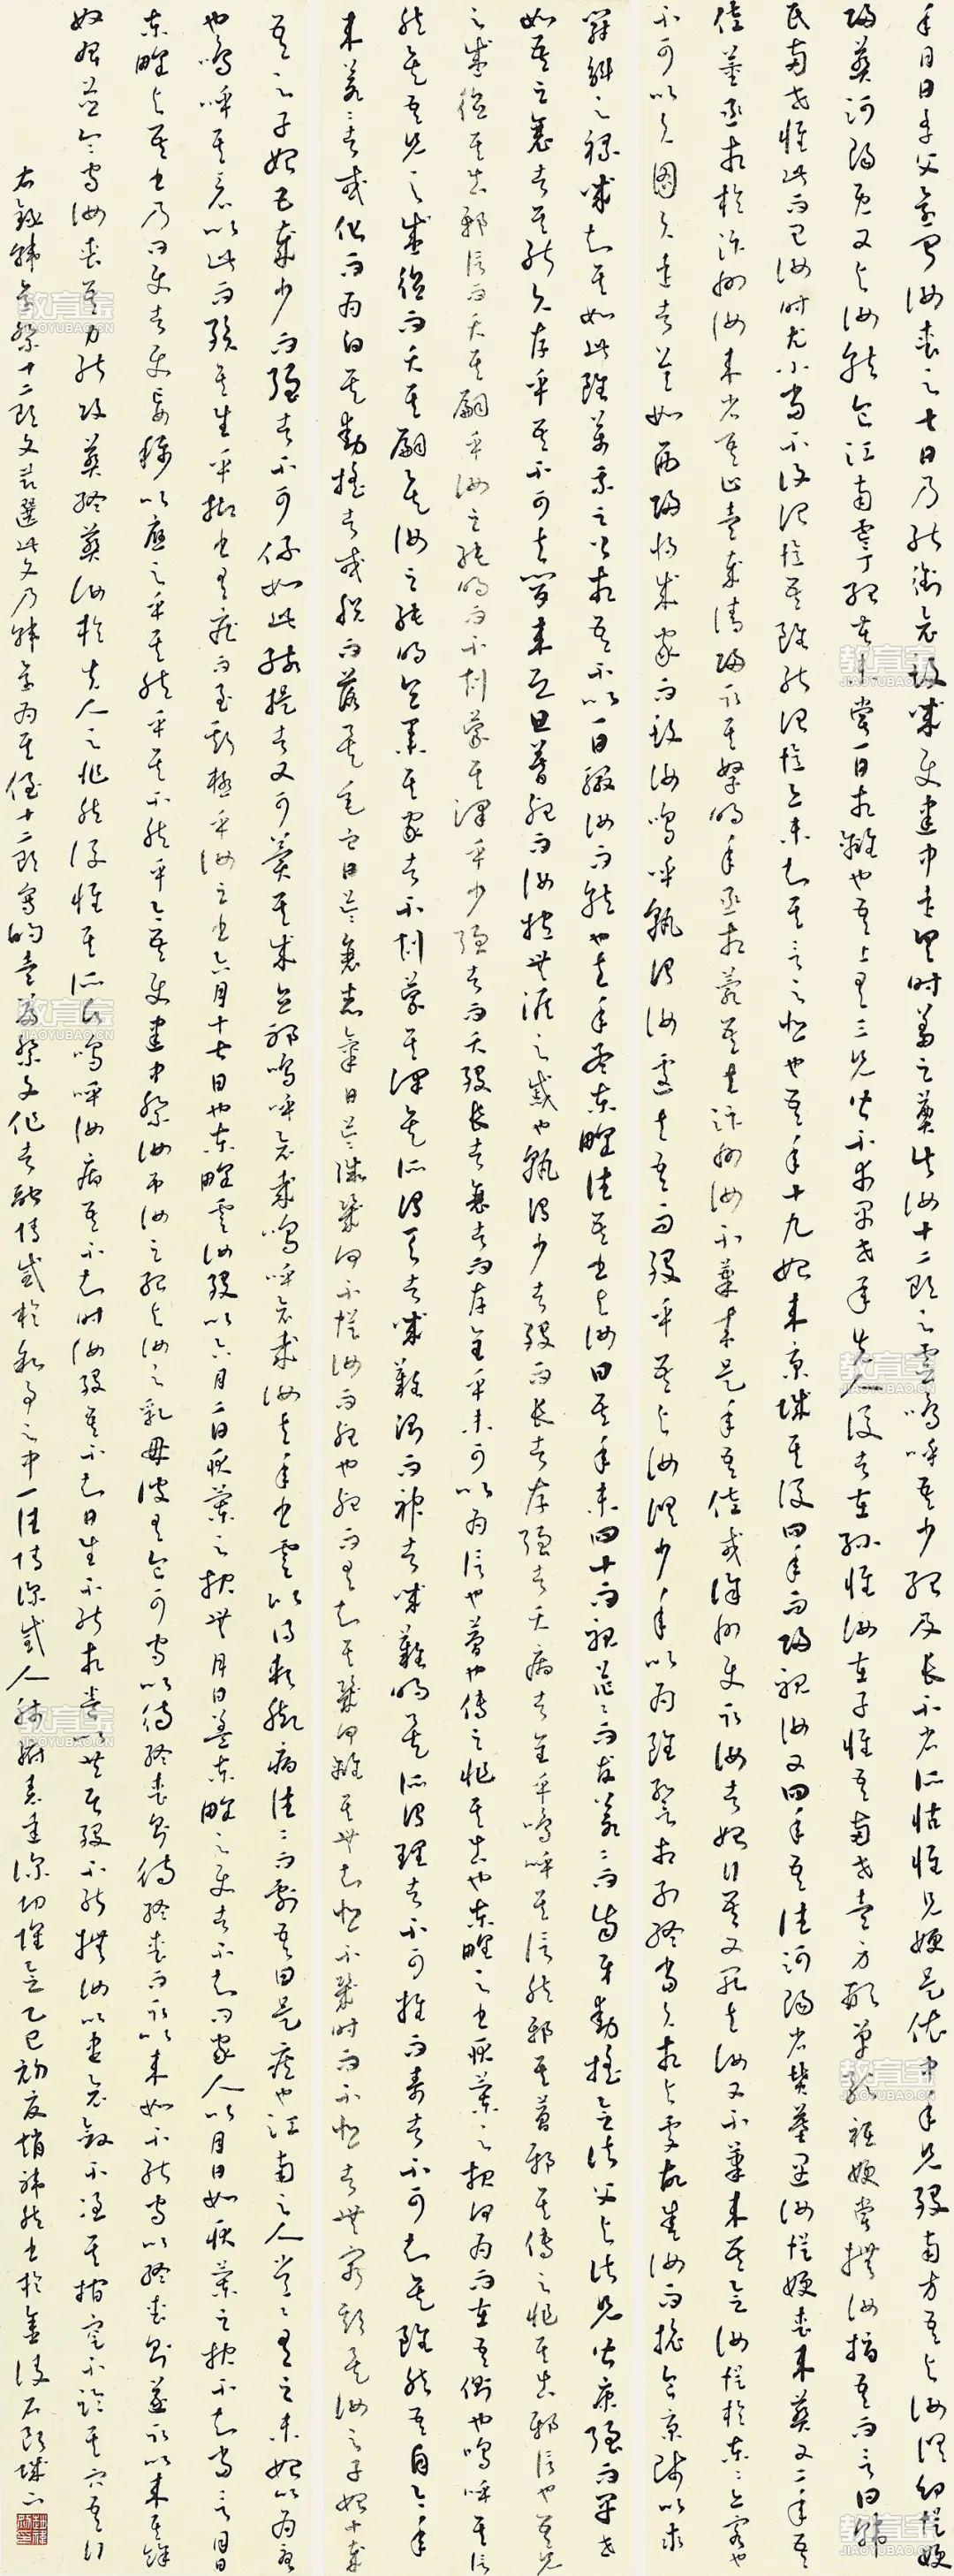 年月日季父愈聞汝喪之七日乃能銜哀致誠使建中遠具時羞之奠告汝十二郎之靈嗚呼吾少孤及長不省所怙惟兄嫂是依中年兄歿南方吾與汝俱幼從嫂
歸葬河陽既又與汝就食江南零丁孤苦未嘗一日相離也吾上有三兄皆不幸早世承先人後者在孫惟汝在子惟吾兩世壹身形單影隻嫂嘗撫汝指吾而言曰韓
氏兩世惟此而已汝時尤小當不復記憶吾雖能記憶亦未知其言之悲也吾年十九始來京城其後四年而歸視汝又四年吾往河陽省墳墓遇汝從嫂喪來葬又二年吾
佐董丞相於汴州汝來省吾止壹歲請歸取其孥明年丞相薨吾去汴州汝不果來是年吾佐戎徐州使取汝者始行吾又罷去汝又不果來吾念汝從於東東亦客也
不可以久圖久遠者莫如西歸將成家而致汝嗚呼孰謂汝遽去吾而歿乎吾與汝俱少年以為雖暫相別終當久相與處故舍汝而旅食京師以求
斗斛之祿誠知其如此雖萬乘之公相吾不以一日輟汝而就也去年孟東野往吾書與汝曰吾年未四十而視茫茫而髮蒼蒼而齒牙動搖念諸父與諸兄皆康強而早世
如吾之衰者其能久存乎吾不可去汝不肯來恐旦暮死而汝抱無涯之戚也孰謂少者歿而長者存強者夭病者全乎嗚呼其信然邪其夢邪其傳之非其真邪信也吾兄
之盛德其真邪信而夭其嗣乎汝之純明而不克蒙其澤乎少強者而夭歿長者衰者而存全乎未可以為信也夢也傳之非其真也東野之書耿蘭之報何為而在吾側也嗚呼其信
然矣吾兄之盛德而夭其嗣矣汝之純明宜業其家者不克蒙其澤矣所謂天者誠難測而神者誠難明矣所謂理者不可推而壽者不可知矣雖然吾自今年
來蒼蒼者或化而為白矣動搖者或脫而落矣毛血日益衰志氣日益微幾何不從汝而死也死而有知其幾何離其無知悲不幾時而不悲者無窮期矣汝之子始十歲
吾之子始五歲少而強者不可保如此孩提者又可冀其成立邪嗚呼哀哉嗚呼哀哉汝去年書云比得軟腳病往往而劇吾曰是疾也江南之人常常有之未始以為憂
也嗚呼其竟以此而殞其生乎抑別有疾而至斯極乎汝之書六月十七日也東野云汝歿以六月二日耿蘭之報無月日蓋東野之使者不知問家人以月日如耿蘭之報不知當言月日
東野與吾書乃問使者使者妄稱以應之乎其然乎其不然乎今吾使建中祭汝弔汝之孤與汝之乳母彼有食可守以待終喪則待終喪而取以來如不能守以終喪則遂取以來其餘
奴婢並令守汝喪吾力能改葬終葬汝於先人之兆然後惟其所願嗚呼汝病吾不知時汝歿吾不知日生不能相養以共居歿不能撫汝以盡哀斂不憑其棺窆不臨其穴吾行
右錄韓愈祭十二郎文此文乃韓愈為其侄十二郎寫的壹篇祭文作者融情感於敘事之中一往情深感人乙巳初夏書於金陵石頭城下
教育宝
JIAOYUBAO.CN
教育宝
JIAOYUBAO.CN
教育宝
JIAOYUBAO.CN
教育宝
JIAOYUBAO.CN
教育宝
JIAOYUBAO.CN
教育宝
JIAOYUBAO.CN
教育宝
JIAOYUBAO.CN